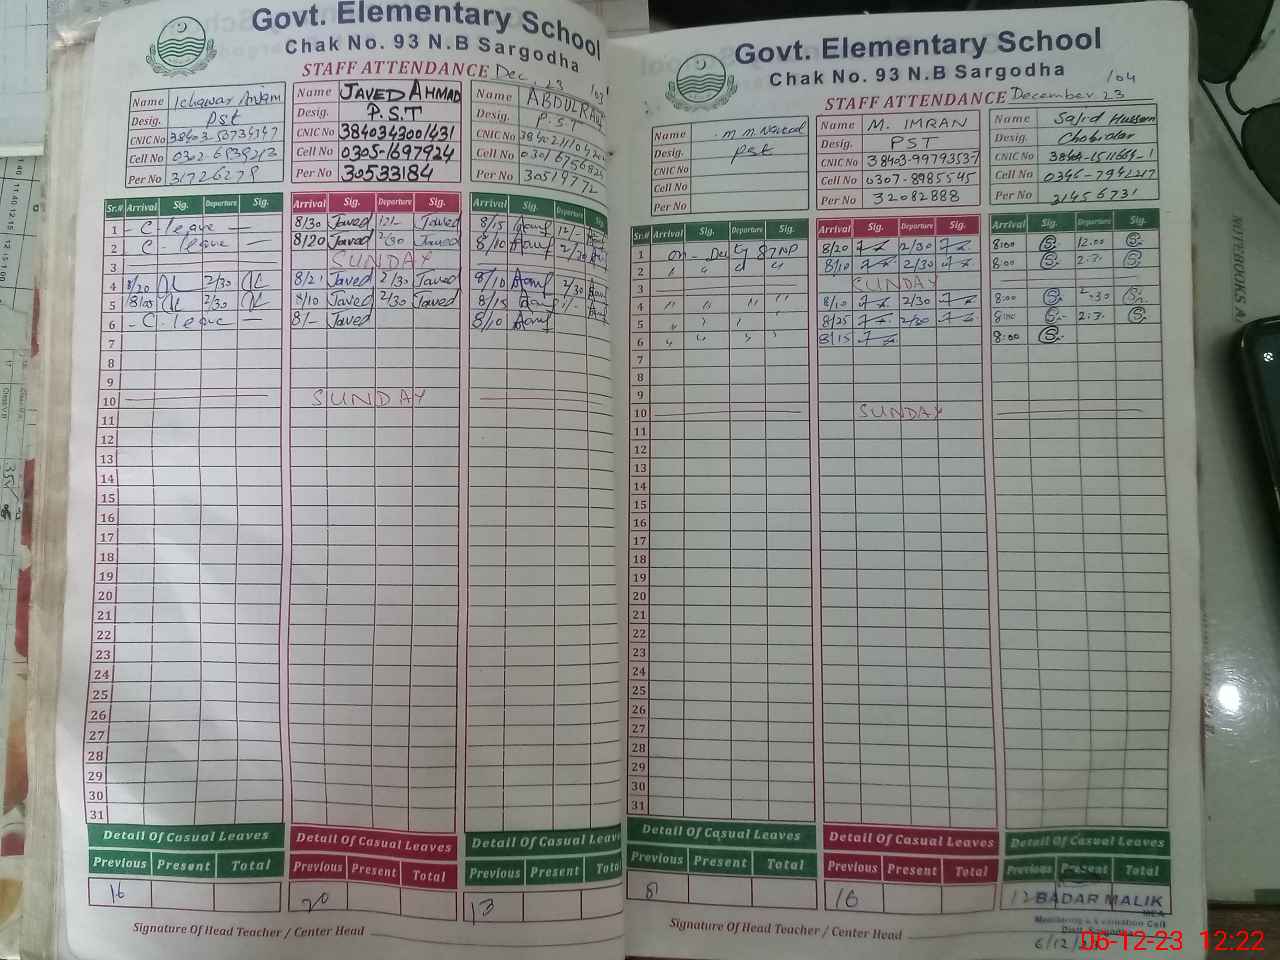 Govt. Elementary School
Chak No. 93 N.B Sargodha
STAFF ATTENDANCE Dec 23
Name
Desig. Pst
CNIC No
Cell No
Per No 31726278
Name JAVED AHMAD
Desig. P.S.T
CNIC No 3840343001431
Cell No 0305-1697924
Per No 30533184
Name
Desig. P.S.T
CNIC No
Cell No
Per No 30519772
Sr.# Arrival Sig. Departure Sig. Arrival Sig. Departure Sig. Arrival Sig. Departure Sig.
1 - C. leave — 8/30 Javed 12/- Javed 8/15 12/-
2 C. leave — 8/20 Javed 2/30 Javed 8/10 2/30
3 SUNDAY
4 8/20 2/30 8/21 Javed 2/30 Javed 8/10 2/30
5 8/00 2/30 8/10 Javed 2/30 Javed 8/15
6 - C. leave — 8/- Javed 8/10
7
8
9
10 SUNDAY
11
12
13
14
15
16
17
18
19
20
21
22
23
24
25
26
27
28
29
30
31
Detail Of Casual Leaves Detail Of Casual Leaves Detail Of Casual Leaves
Previous Present Total Previous Present Total Previous Present Total
16 20 13
Signature Of Head Teacher / Center Head
Govt. Elementary School
Chak No. 93 N.B Sargodha
STAFF ATTENDANCE December 23 /04
Name
Desig. Pst
CNIC No
Cell No
Per No
Name M. IMRAN
Desig. PST
CNIC No 38403-9979353-7
Cell No 0307-8985545
Per No 32082888
Name Sajid Hussain
Desig. Chokidar
CNIC No
Cell No 0346-7942217
Per No 31456731
Sr.# Arrival Sig. Departure Sig. Arrival Sig. Departure Sig. Arrival Sig. Departure Sig.
1 on - Duty 8/20 2/30 8:00 12:00
2 " " " " 8/10 2/30 8:00 2:30
3 SUNDAY
4 " " " " 8/10 2/30 8:00 2:30
5 8/25 2/30 8:00 2:30
6 8/15 8:00
7
8
9
10 SUNDAY
11
12
13
14
15
16
17
18
19
20
21
22
23
24
25
26
27
28
29
30
31
Detail Of Casual Leaves Detail Of Casual Leaves Detail Of Casual Leaves
Previous Present Total Previous Present Total Previous Present Total
8 16
BADAR MALIK
MEA
Monitoring & Evaluation Cell
Distt. Sargodha
Signature Of Head Teacher / Center Head
06-12-23 12:22
NOTEBOOKS